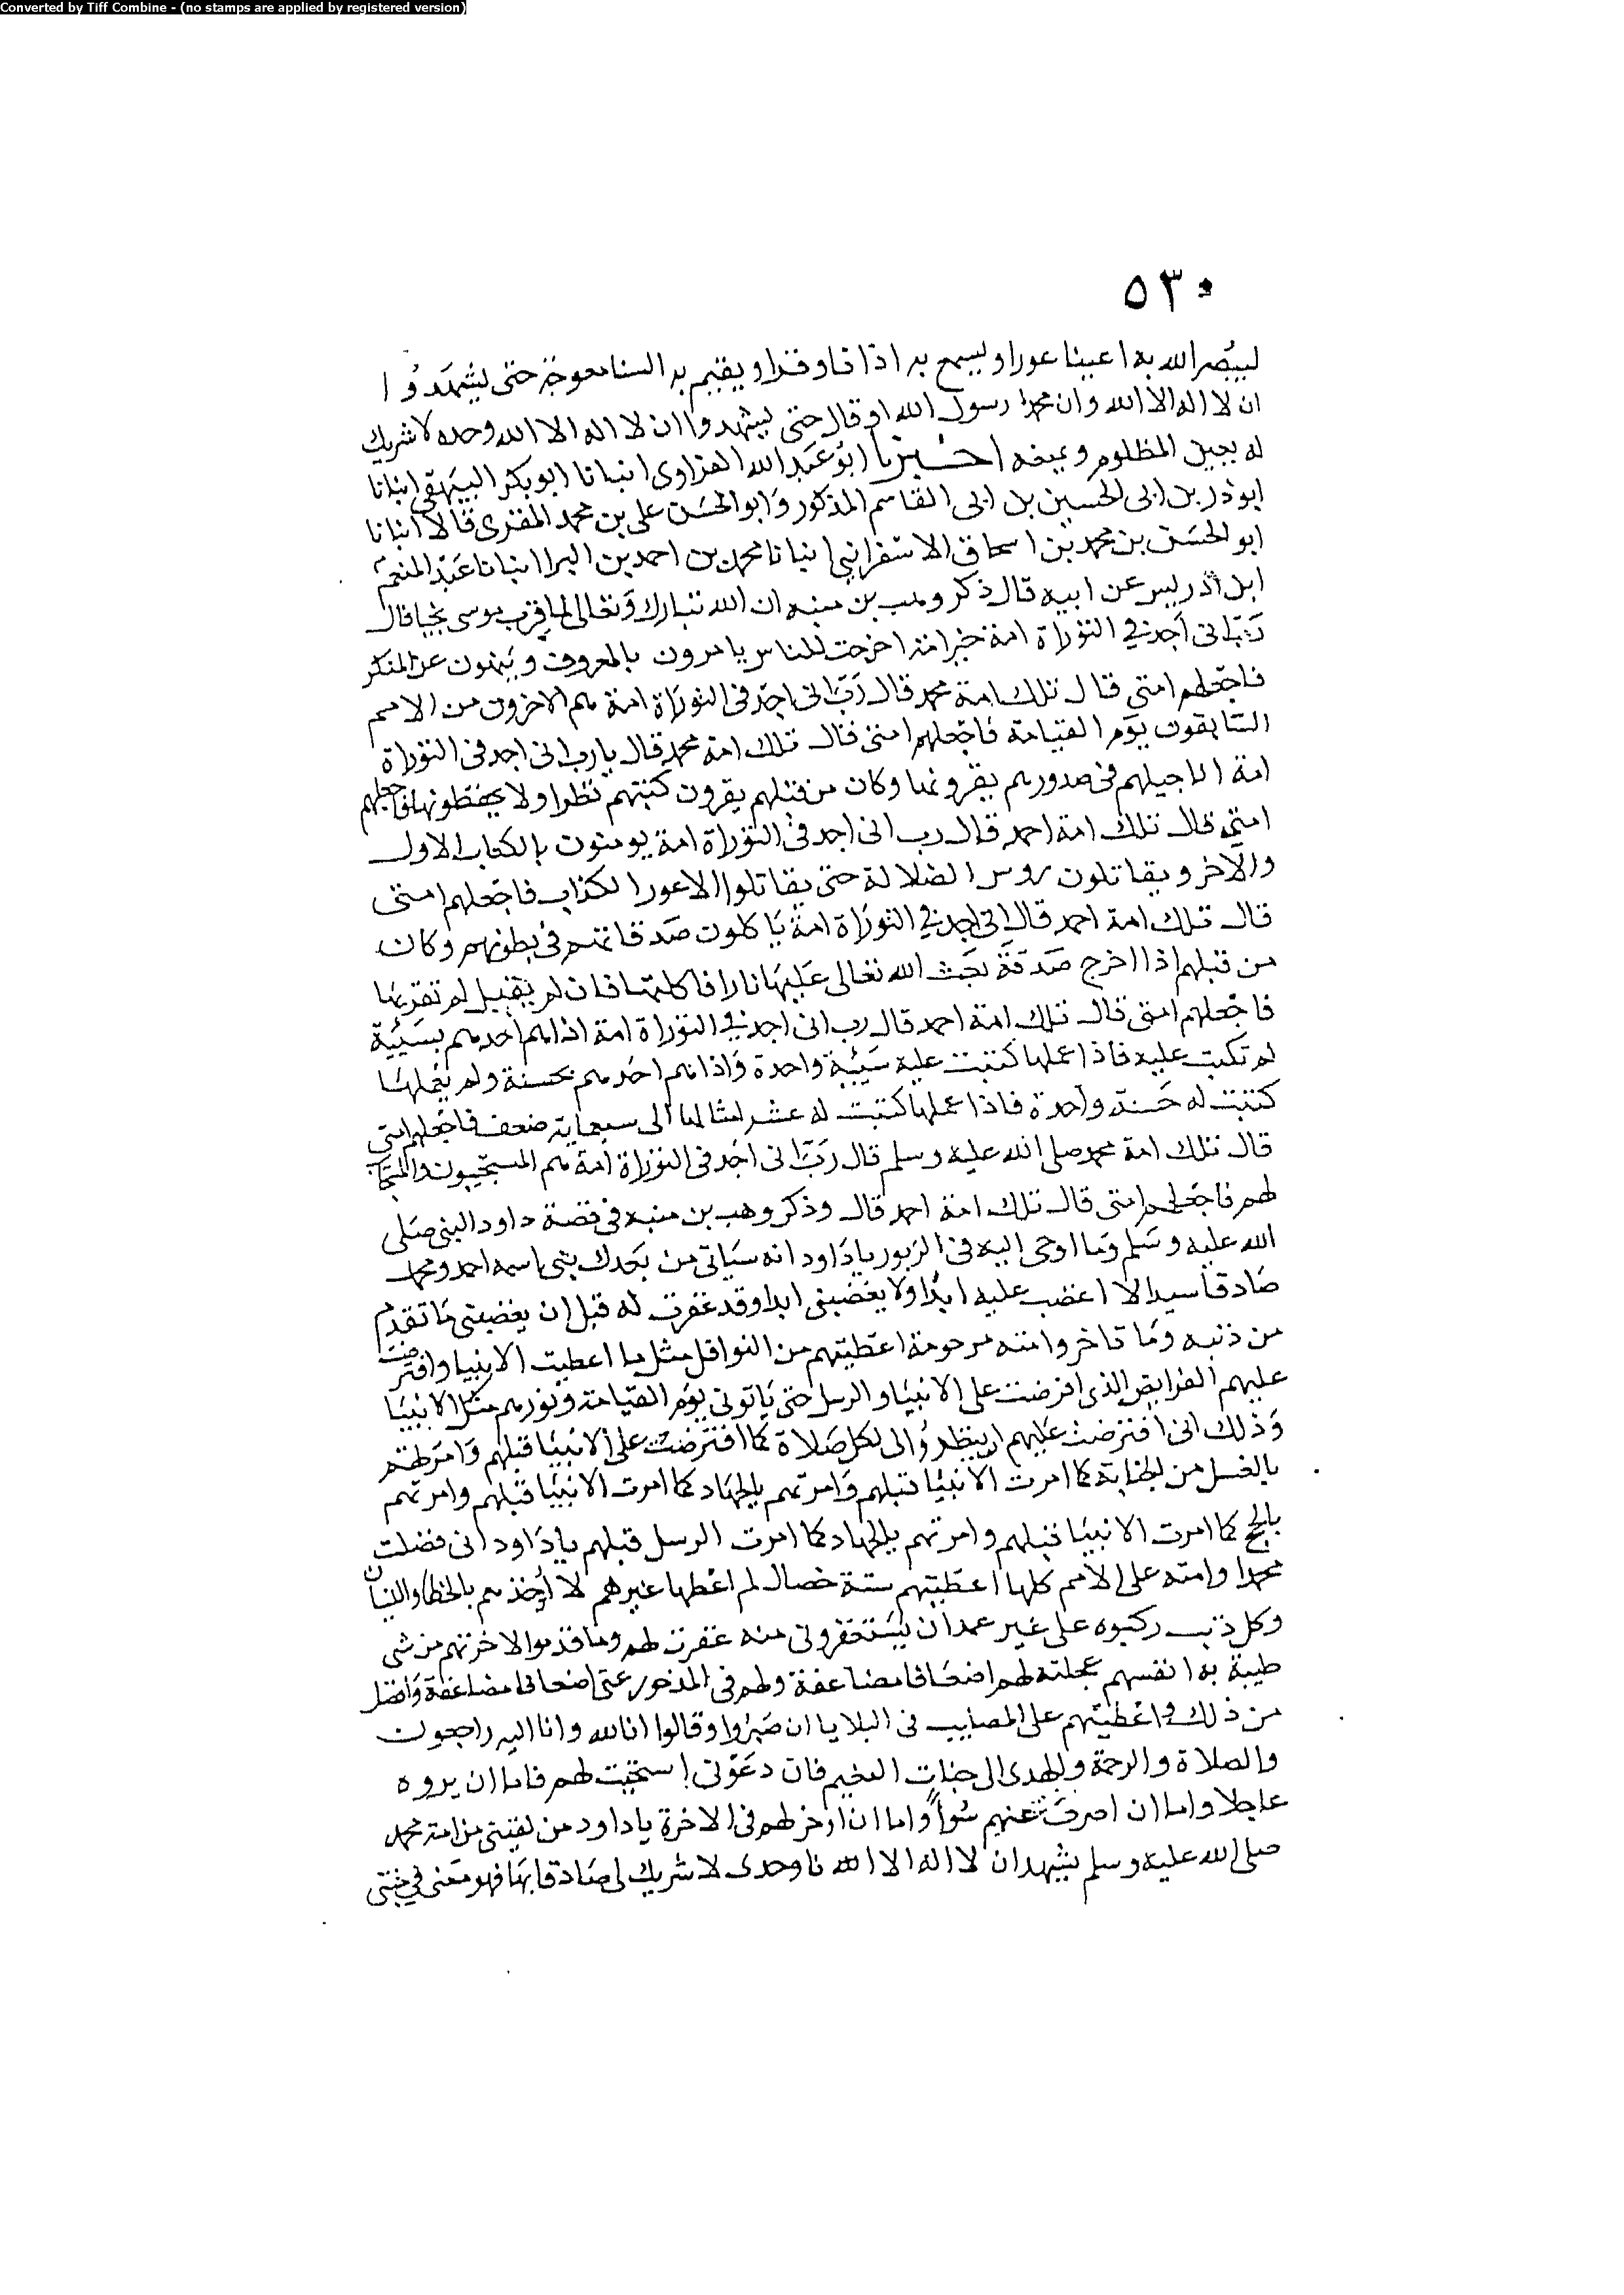 Converted by Tiff Combine - (no stamps are applied by registered version)
٥٣٠
ليبصر الله به اعينا عورا ويسمع به اذانا وقرا ويقيم به السنا معوجة حتى يشهدوا
ان لا اله الا الله وان محمدا رسول الله او قال حتى يشهدوا ان لا اله الا الله وحده لا شريك
له يعين المظلوم ويمنعه اخبرنا ابو عبد الله الفراوى انبانا ابو بكر البيهقى انبانا
ابو ذر بن ابى الحسين بن ابى القاسم المذكور وابو الحسن على بن محمد المقرى قالا انبانا
ابو الحسن بن محمد بن اسحاق الاسفرانيى انبانا محمد بن احمد بن البرا انبانا عبد المنعم
ابن ادريس عن ابيه قال ذكر وهب بن منبه ان الله تبارك وتعالى لما قرب موسى نجيا قال
رب انى اجد فى التوراة امة خير امة اخرجت للناس يامرون بالمعروف وينهون عن المنكر
فاجعلهم امتى قال تلك امة محمد قال رب انى اجد فى التوراة امة هم الاخرون من الامم
السابقون يوم القيامة فاجعلهم امتى قال تلك امة محمد قال يارب انى اجد فى التوراة
امة اناجيلهم فى صدورهم يقرونها وكان من قبلهم يقرون كتبهم نظرا ولا يحفظونها فاجعلهم
امتى قال تلك امة احمد قال رب انى اجد فى التوراة امة يومنون بالكتاب الاول
والاخر ويقاتلون روس الضلالة حتى يقاتلوا الاعور الكذاب فاجعلهم امتى
قال تلك امة احمد قال انى اجد فى التوراة امة ياكلون صدقاتهم فى بطونهم وكان
من قبلهم اذا اخرج صدقة بعث الله تعالى عليها نارا فاكلتها فان لم يقبل لم تقربها
فاجعلهم امتى قال تلك امة احمد قال رب انى اجد فى التوراة امة اذا هم احدهم بسيئة
لم تكتب عليه فاذا عملها كتبت عليه سيئة واحدة واذا هم احدهم بحسنة ولم يعملها
كتبت له حسنة واحدة فاذا عملها كتبت له عشر امثالها الى سبعماية ضعف فاجعلهم امتى
قال تلك امة محمد صلى الله عليه وسلم قال رب انى اجد فى التوراة امة هم المستجيبون والمستجاب
لهم فاجعلهم امتى قال تلك امة احمد قال وذكر وهب بن منبه فى قصة داود النبى صلى
الله عليه وسلم وما اوحى اليه فى الزبور يا داود انه سياتى من بعدك نبى اسمه احمد ومحمد
صادقا سيدا لا اغضب عليه ابدا ولا يغضبنى ابدا وقد غفرت له قبل ان يغضبنى ما تقدم
من ذنبه وما تاخر وامته مرحومة اعطيتهم من النوافل مثل ما اعطيت الانبيا وافترضت
عليهم الفرايض الذى افرضت على الانبيا والرسل حتى ياتونى يوم القيامة ونورهم مثل الانبيا
وذلك انى افترضت عليهم ان يتطهروا الى لكل صلاة كما افترضت على الانبيا قبلهم وامرتهم
بالغسل من الجنابة كما امرت الانبيا قبلهم وامرتهم بالجهاد كما امرت الانبيا قبلهم وامرتهم
بالحج كما امرت الانبيا قبلهم وامرتهم بالجهاد كما امرت الرسل قبلهم يا داود انى فضلت
محمدا وامته على الامم كلها اعطيتهم ستة خصال لم اعطها غيرهم لا اؤخذهم بالخطا والنسيان
وكل ذنب ركبوه على غير عمد ان يستغفرونى منه غفرت لهم وما قدموا لاخرتهم من شى
طيبة به انفسهم عجلته لهم اضعافا مضاعفة ولهم فى المدخور عندى اضعافا مضاعفة وافضل
من ذلك واعطيتهم على المصايب فى البلايا ان صبروا وقالوا انا لله وانا اليه راجعون
والصلاة والرحمة والهدى الى جنات النعيم فان دعونى استجبت لهم فاما ان يروه
عاجلا واما ان اصرف عنهم سوا واما ان ادخر لهم فى الاخرة يا داود من لقينى من امة محمد
صلى الله عليه وسلم يشهد ان لا اله الا الله نا وحدى لا شريك لى صادقا بها فهو معى فى جنتى